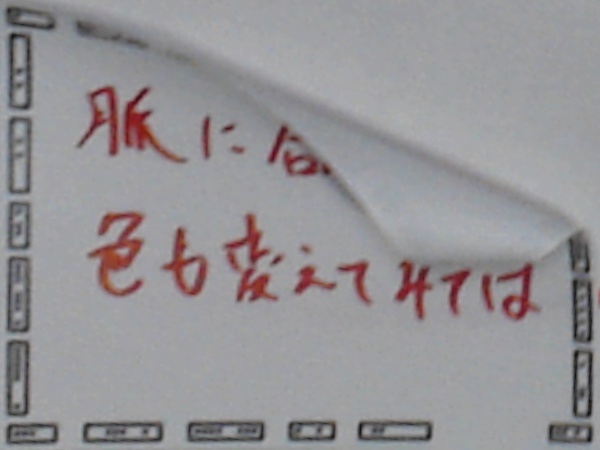 脈に合
色も変えてみては